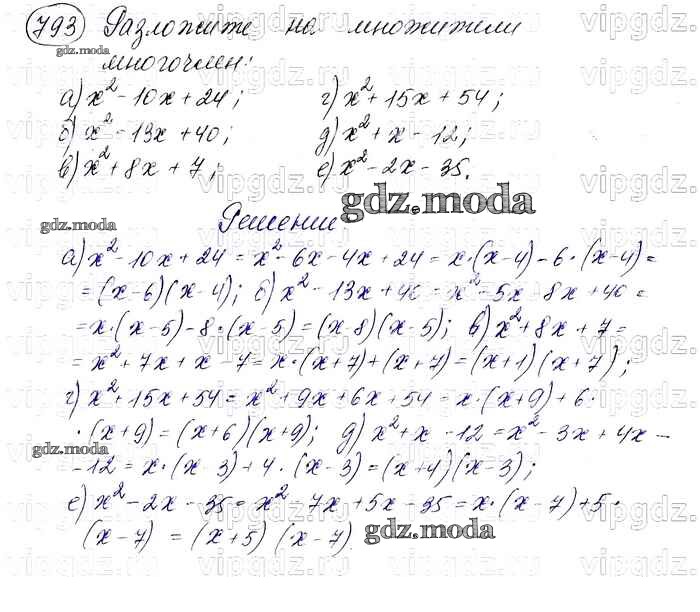 793 Разложите на множители
многочлен:
а) x² - 10x + 24; г) x² + 15x + 54;
б) x² - 13x + 40; д) x² + x - 12;
в) x² + 8x + 7; е) x² - 2x - 35.
gdz.moda
gdz.moda
gdz.moda
Решении
а) x² - 10x + 24 = x² - 6x - 4x + 24 = x·(x-4) - 6·(x-4) =
= (x-6)(x-4); б) x² - 13x + 40 = x² - 5x - 8x + 40 =
= x·(x-5) - 8·(x-5) = (x-8)(x-5); в) x² + 8x + 7 =
= x² + 7x + x - 7 = x·(x+7) + (x+7) = (x+1)(x+7);
г) x² + 15x + 54 = x² + 9x + 6x + 54 = x·(x+9) + 6·
·(x+9) = (x+6)(x+9); д) x² + x - 12 = x² - 3x + 4x -
gdz.moda
- 12 = x·(x-3) + 4·(x-3) = (x+4)(x-3);
е) x² - 2x - 35 = x² - 7x + 5x - 35 = x·(x-7) + 5·
(x-7) = (x+5)(x-7)
gdz.moda
vipgdz.ru